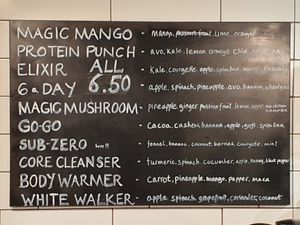 MAGIC MANGO - Mango, passionfruit, lime, orange
PROTEIN PUNCH - avo, kale, lemon, orange, chia, spirulina
ELIXIR ALL - Kale, courgette, apple, spirulina, mango,
6 a DAY 6.50 - apple, spinach, pineapple, avo, banana,
MAGIC MUSHROOM - pineapple, ginger, passion fruit, lime,
GO-GO - Cacao, cashew, banana, apple, spirulina
SUB-ZERO - fennel, banana, coconut, berries, courgette, mint
CORE CLEANSER - turmeric, spinach, cucumber, apple, honey, black pepper
BODY WARMER - Carrot, pineapple, mango, pepper, maca
WHITE WALKER - apple, spinach, grapefruit, coriander, coconut